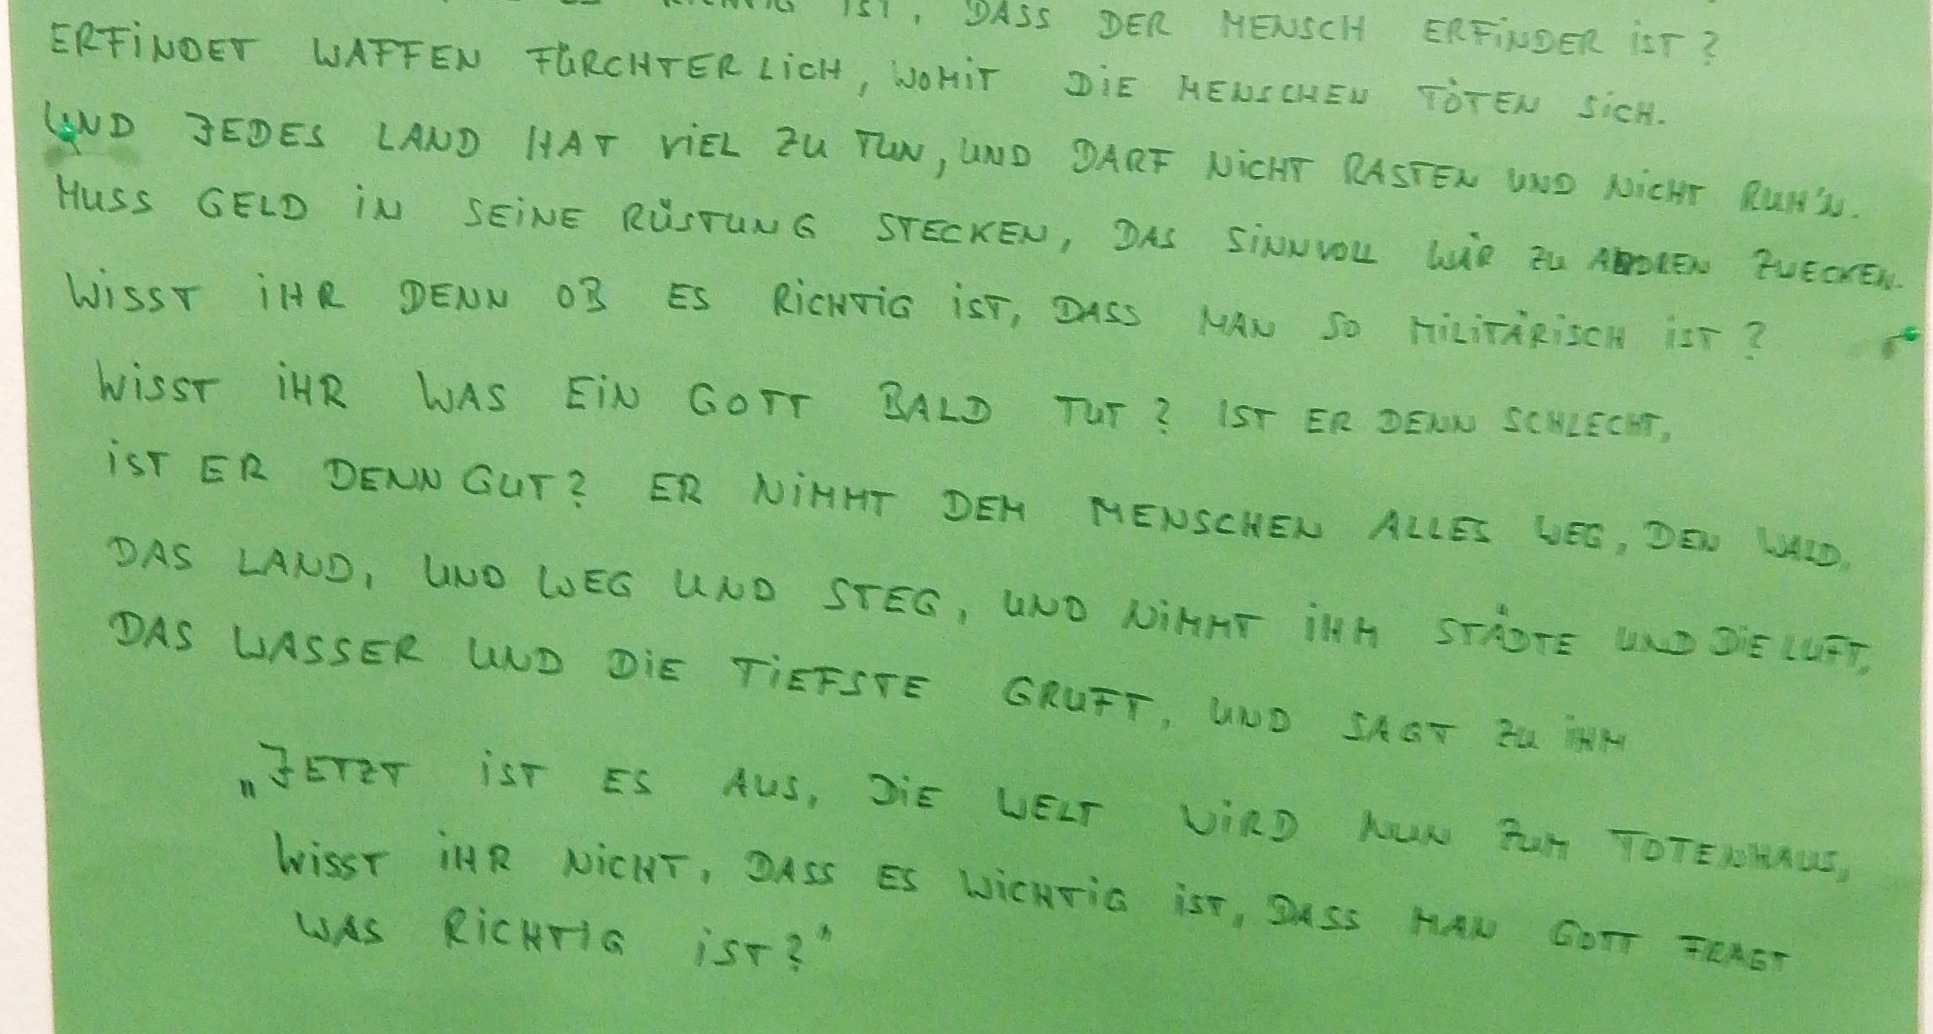 RICHTIG IST, DASS DER MENSCH ERFINDER IST?
ERFINDET WAFFEN FÜRCHTERLICH, WOMIT DIE MENSCHEN TÖTEN SICH.
UND JEDES LAND HAT VIEL ZU TUN, UND DARF NICHT RASTEN UND NICHT RUH'N.
MUSS GELD IN SEINE RÜSTUNG STECKEN, DAS SINNVOLL WÄR ZU ANDREN ZWECKEN.
WISST IHR DENN OB ES RICHTIG IST, DASS MAN SO MILITÄRISCH IST?
WISST IHR WAS EIN GOTT BALD TUT? IST ER DENN SCHLECHT,
IST ER DENN GUT? ER NIMMT DEM MENSCHEN ALLES WEG, DEN WALD,
DAS LAND, UND WEG UND STEG, UND NIMMT IHM STÄDTE UND DIE LUFT,
DAS WASSER UND DIE TIEFSTE GRUFT, UND SAGT ZU IHM
„JETZT IST ES AUS, DIE WELT WIRD NUN ZUM TOTENHAUS,
WISST IHR NICHT, DASS ES WICHTIG IST, DASS MAN GOTT FRAGT
WAS RICHTIG IST?"